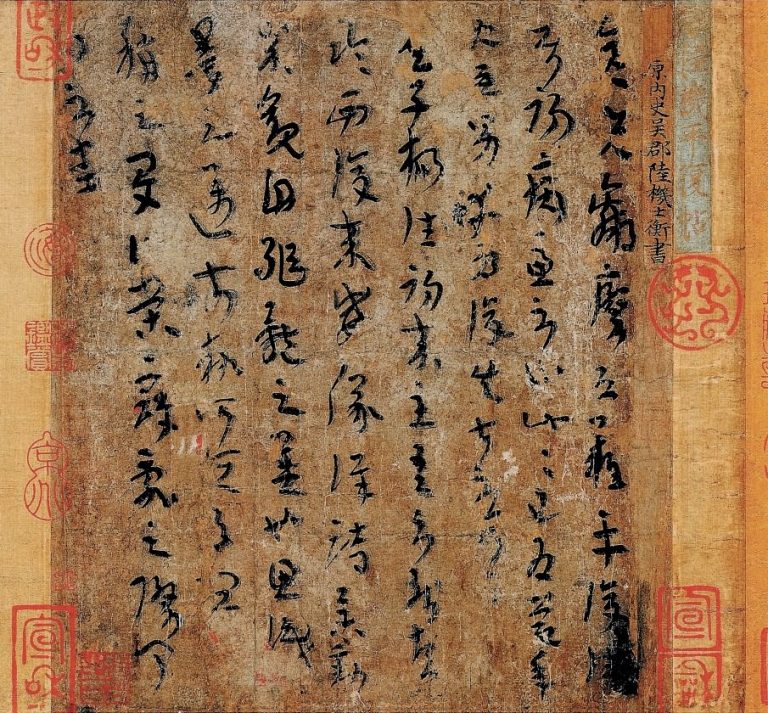 原内史吳郡陸機士衡書
彦先羸瘵恐難平復往屬
初病慮不止此此已為慶承
使唯男幸為復失前憂耳
吳子楊往初來主吾不能盡
臨西復來威儀詳跱舉動
成觀自軀體之美也思識
量之邁前執所恒有宜
稱之夏伯榮寇亂之際聞
問不悉
宣和